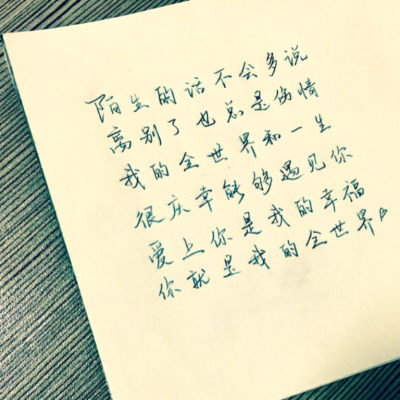 陌生的话不会多说
离别了也总是伤情
我的全世界和一生
很庆幸能够遇见你
爱上你是我的幸福
你就是我的全世界